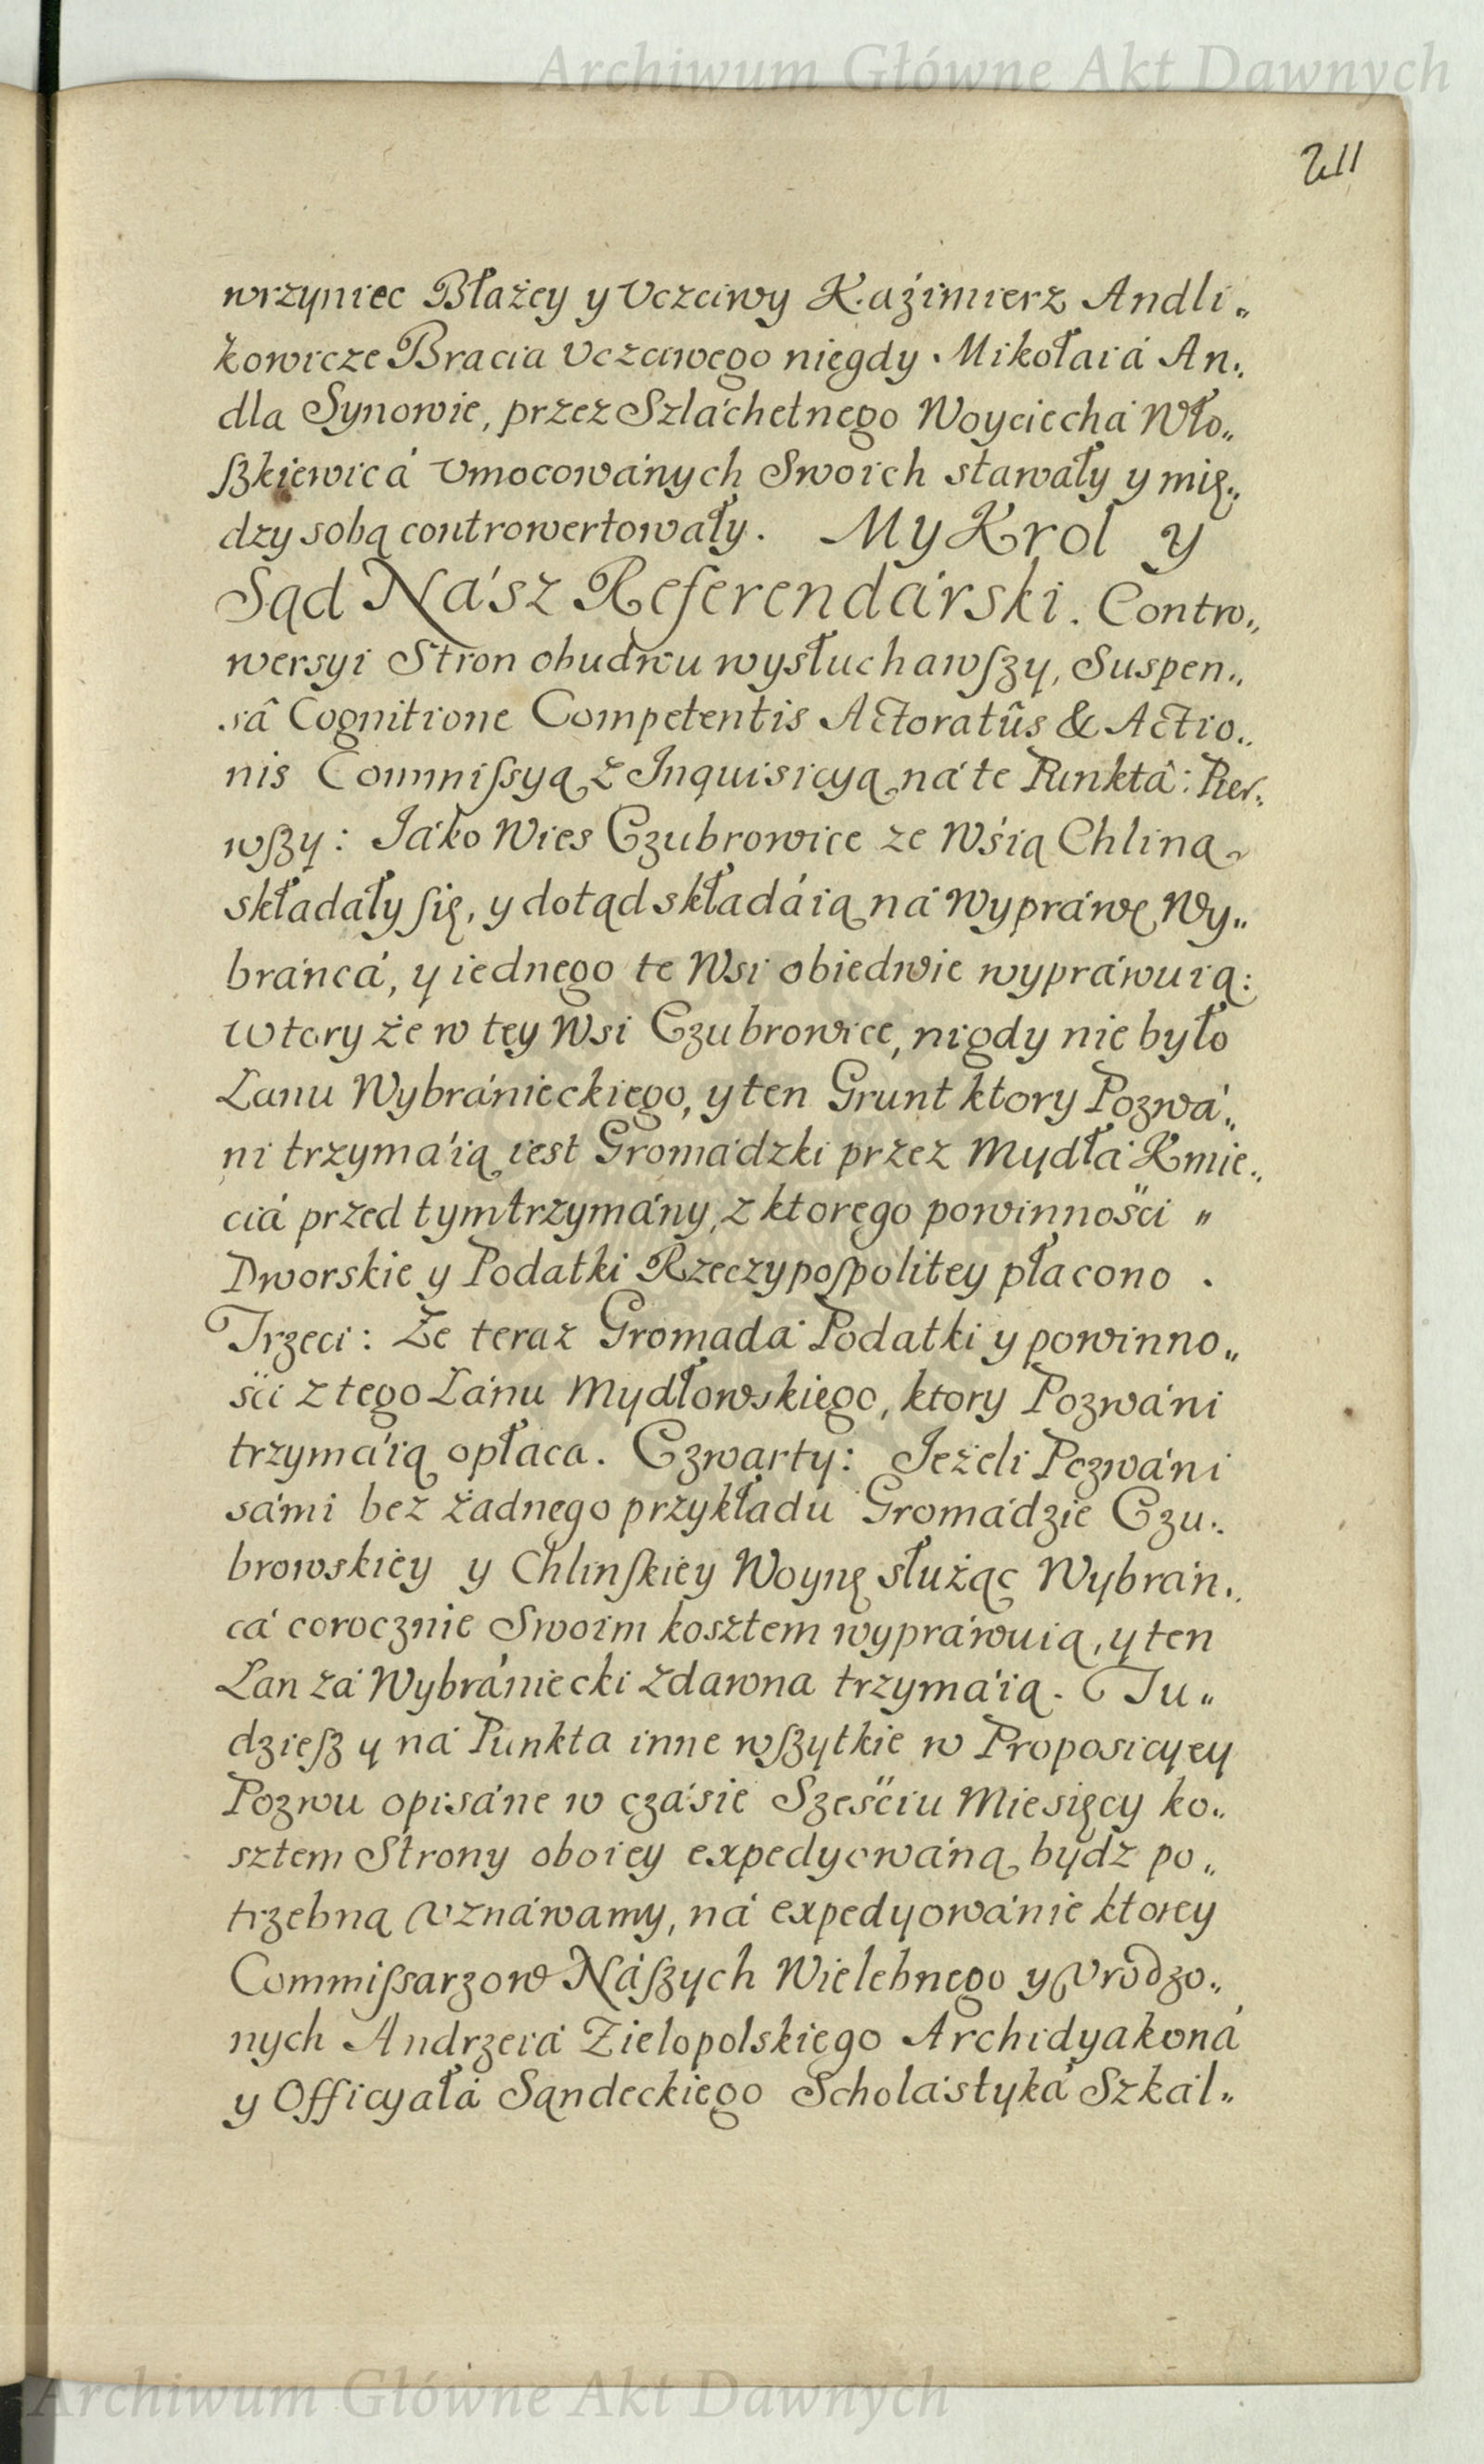 Archiwum Główne Akt Dawnych
211
wrzyniec Błażey y Vczciwy Kaźimierz Andli„
kowicze Bracia Vczciwego niegdy Mikołaiá An„
dla Synowie, przez Szláchetnego Woyciechá Wło„
ſzkiewicá Vmocowánych Swoich stawáły y mię„
dzy sobą controwertowáły. My Krol y
Sąd Nász Referendárski. Contro„
wersyi Stron obudwu wysłuchawſzy, Suspen„
sâ Cognitione Competentis Actoratûs & Actio„
nis Commiſsyą z Inquisicyą ná te Punktá: Pier„
wſzy: Jáko Wies Czubrowice ze Wśią Chliną
składáły ſię, y dotąd składáią ná Wypráwę Wy„
bráncá, y iednego te Wsi obiedwie wypráwuią:
Wtory że w tey Wsi Czubrowice, nigdy nie było
Lanu Wybránieckiego, y ten Grunt ktory Pozwá„
ni trzymáią iest Gromádzki przez Mydłá Kmie„
ciá przed tym trzymány, z ktorego powinnośći „
Dworskie y Podatki Rzeczypoſpolitey płacono .
Trzeci: Że teraz Gromadá Podatki y powinno„
śći z tego Lánu Mydłowskiego, ktory Pozwáni
trzymáią opłaca. Czwarty: Jeżeli Pozwáni
sámi bez żadnego przykładu Gromádzie Czu„
browskiey y Chlinſkiey Woynę służąc Wybrán„
cá corocznie Swoim kosztem wypráwuią, y ten
Lan zá Wybrániecki zdawna trzymáią. Tu„
dzieſz y ná Punkta inne wſzytkie w Proposicyey
Pozwu opisáne w czásie Sześćiu Miesięcy ko„
sztem Strony oboiey expedyowáną bydz po„
trzebną Vznáwamy, ná expedyowánie ktorey
Commiſsarzow Náſzych Wielebnego y Vrodzo„
nych Andrzeiá Zielopolskiego Archidyakoná
y Officyałá Sąndeckiego Scholástyká Szkál„
Archiwum Główne Akt Dawnych